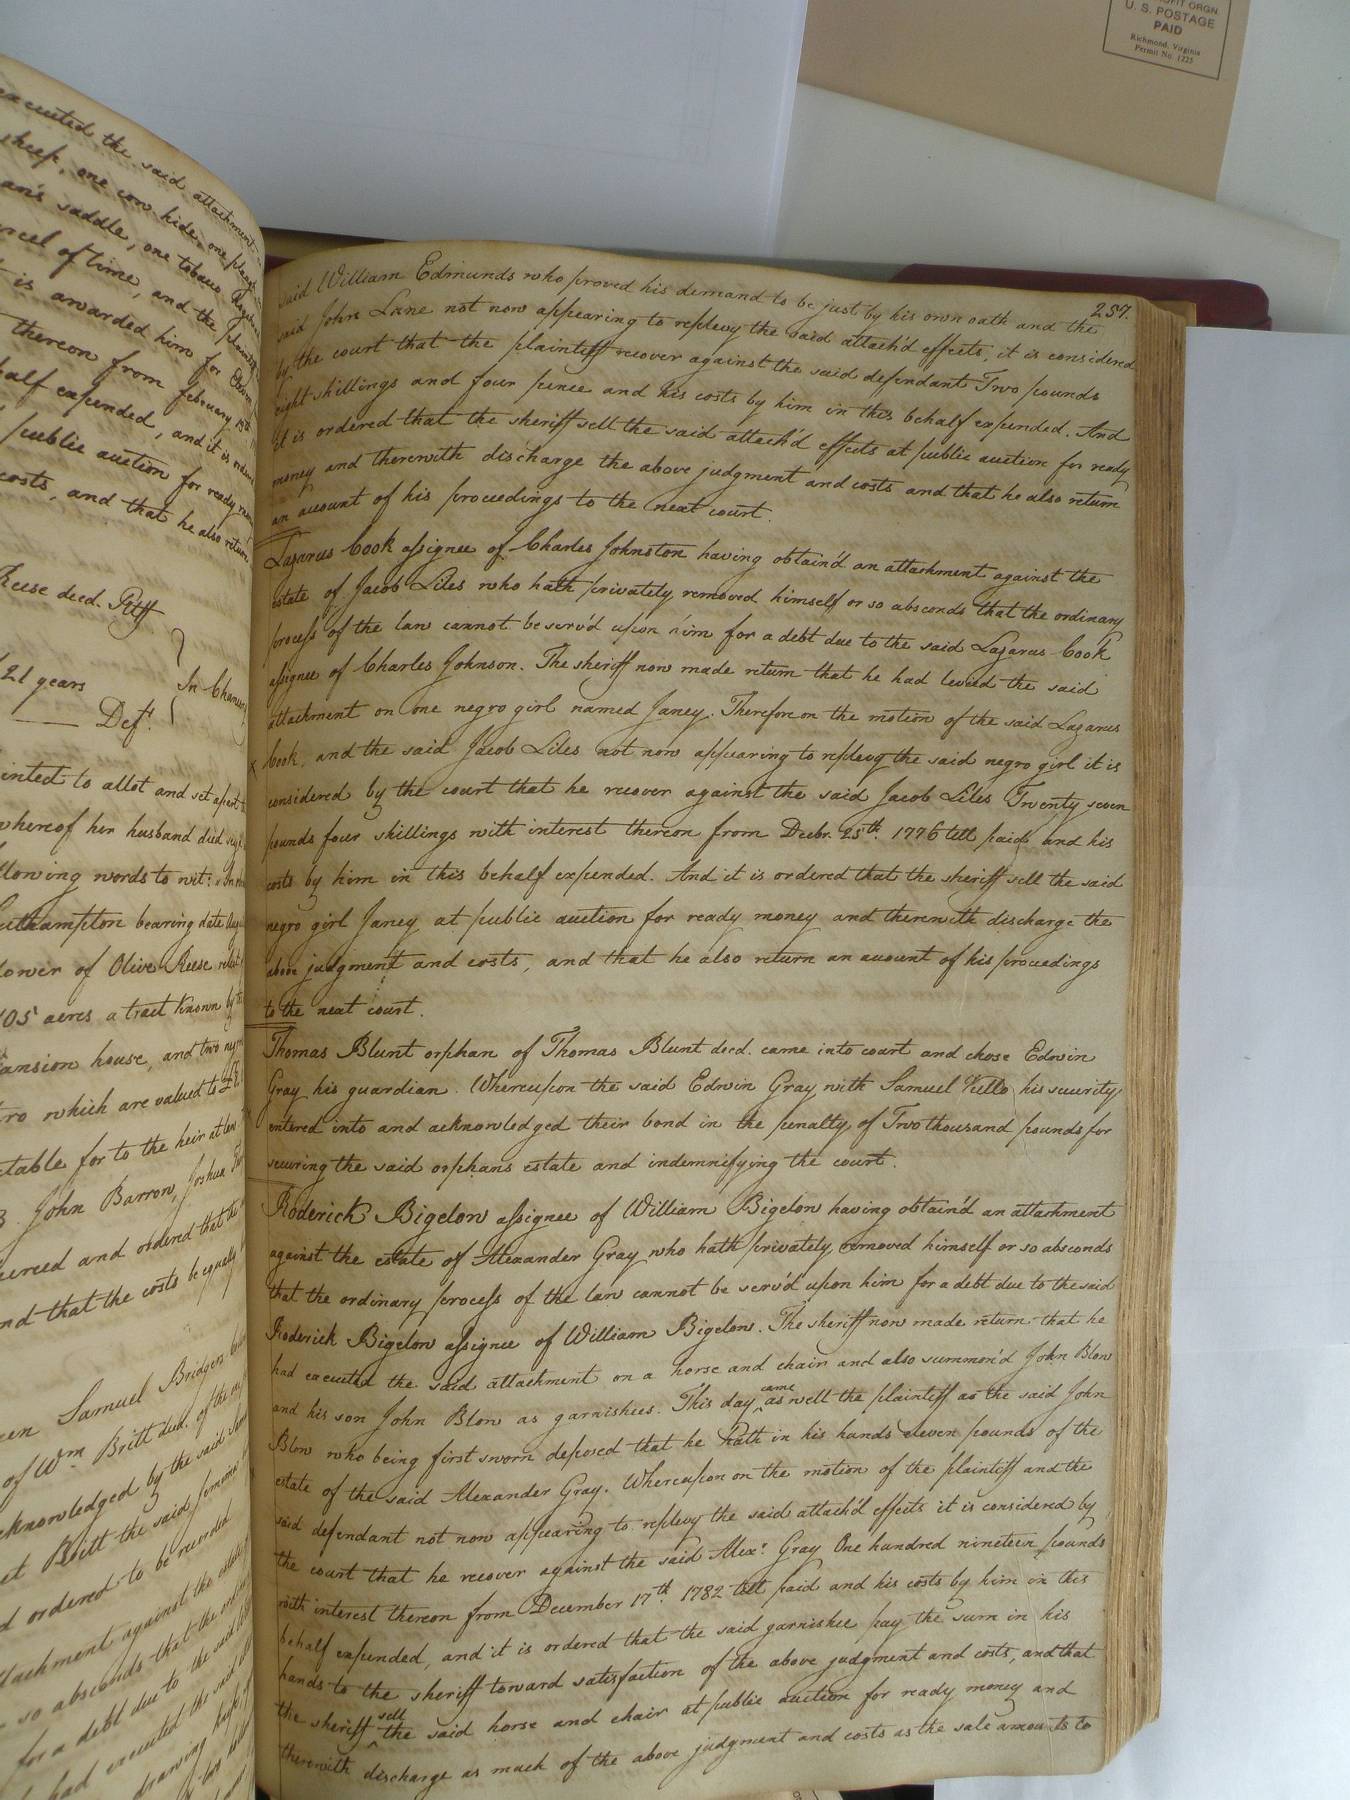 OFIT ORGN.
U. S. POSTAGE
PAID
Richmond, Virginia
Permit No. 1225
executed the said attachment
sheep, one cow hide, one
an's saddle, one tobacco
rcel of time, and the
t is awarded him for
thereon from february 15th
half expended, and it is
public auction for ready
costs, and that he also return
Reese decd. Pltff
In Chancery
21 years
Deft.
inted to allot and set apart
whereof her husband died
llowing words to wit:
uthampton bearing date
dower of Olive Reese
105 acres a tract known by
ansion house, and two
ro which are valued to
table for to the heir at law
John Barrow, Joshua
ecreed and ordered that the
nd that the costs be equally
een Samuel Bridgers
of Wm Britt decd. of the
cknowledged by the said
et Britt the said
d ordered to be recorded
ttachment against the estate
so absconds that the
for a debt due to the said
had executed the said
drawing
257.
said William Edmunds who proved his demand to be just by his own oath and the
said John Lane not now appearing to replevy the said attach'd effects, it is considered
by the court that the plaintiff recover against the said defendant Two pounds
eight shillings and four pence and his costs by him in this behalf expended. And
it is ordered that the sheriff sell the said attach'd effects at public auction for ready
money and therewith discharge the above judgment and costs and that he also return
an account of his proceedings to the next court.
Lazarus Cook assignee of Charles Johnston having obtain'd an attachment against the
estate of Jacob Liles who hath privately removed himself or so absconds that the ordinary
process of the law cannot be serv'd upon him for a debt due to the said Lazarus Cook
assignee of Charles Johnson. The sheriff now made return that he had levied the said
attachment on one negro girl named Janey. Therefore on the motion of the said Lazarus
Cook, and the said Jacob Liles not now appearing to replevy the said negro girl it is
considered by the court that he recover against the said Jacob Liles Twenty seven
pounds four shillings with interest thereon from Decbr. 25th. 1776 till paid and his
costs by him in this behalf expended. And it is ordered that the sheriff sell the said
negro girl Janey at public auction for ready money and therewith discharge the
above judgment and costs, and that he also return an account of his proceedings
to the next court.
Thomas Blunt orphan of Thomas Blunt decd. came into court and chose Edwin
Gray his guardian. Whereupon the said Edwin Gray with Samuel Kello his security
entered into and acknowledged their bond in the penalty of Two thousand pounds for
securing the said orphans estate and indemnifying the court.
Roderick Bigelow assignee of William Bigelow having obtain'd an attachment
against the estate of Alexander Gray who hath privately removed himself or so absconds
that the ordinary process of the law cannot be serv'd upon him for a debt due to the said
Roderick Bigelow assignee of William Bigelow. The sheriff now made return that he
had executed the said attachment on a horse and chair and also summon'd John Blow
and his son John Blow as garnishees. This day came as well the plaintiff as the said John
Blow who being first sworn deposed that he hath in his hands eleven pounds of the
estate of the said Alexander Gray. Whereupon on the motion of the plaintiff and the
said defendant not now appearing to replevy the said attach'd effects it is considered by
the court that he recover against the said Alexr. Gray One hundred nineteen pounds
with interest thereon from December 17th. 1782 till paid and his costs by him in this
behalf expended, and it is ordered that the said garnishee pay the sum in his
hands to the sheriff toward satisfaction of the above judgment and costs, and that
the sheriff sell the said horse and chair at public auction for ready money and
therewith discharge as much of the above judgment and costs as the sale amounts to